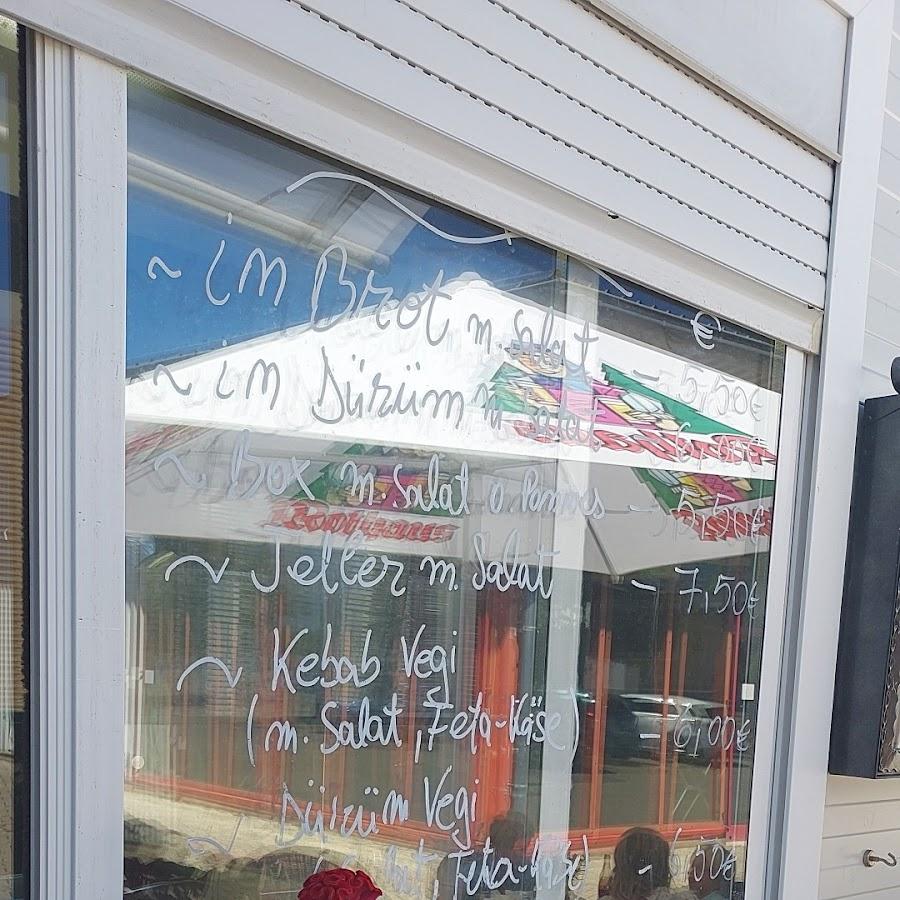 €
~ im Brot m. Salat - 5,50€
~ im Dürüm m Salat - 6,00€
~ Box m. Salat o Pommes - 5,50€
~ Teller m. Salat - 7,50€
~ Kebab Vegi
(m. Salat, Feta-Käse) - 6,00€
~ Dürüm Vegi
Salat, Feta-Käse) - 6,50€